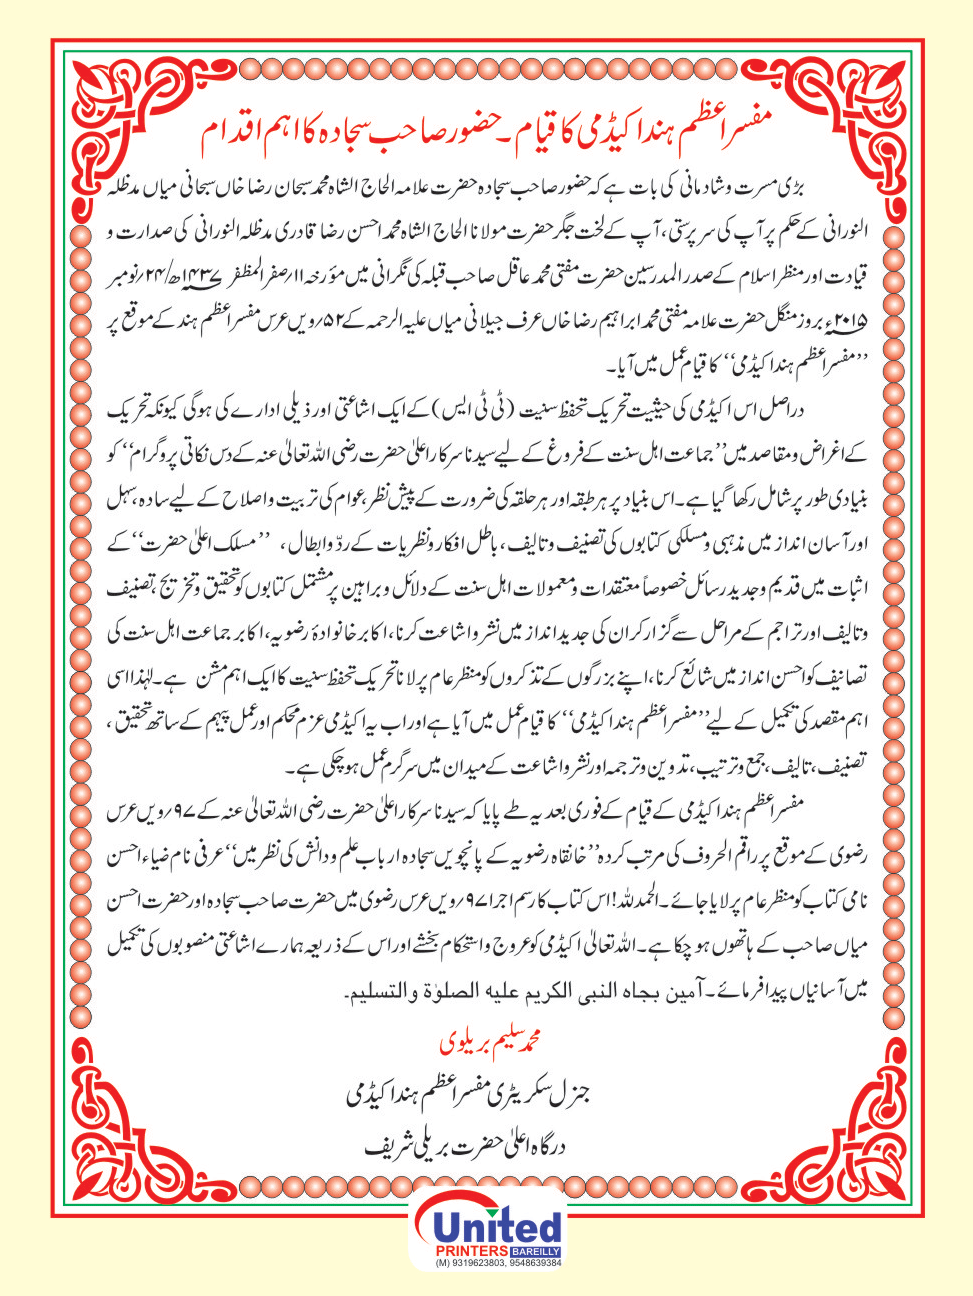 مفسر اعظم ہند اکیڈمی کا قیام ۔ حضور صاحب سجادہ کا اہم اقدام
بڑی مسرت و شادمانی کی بات ہے کہ حضور صاحب سجادہ حضرت علامہ الحاج الشاہ محمد سبحان رضا خاں سبحانی میاں مدظلہ
النورانی کے حکم پر آپ کی سرپرستی، آپ کے لخت جگر حضرت مولانا الحاج الشاہ محمد احسن رضا قادری مدظلہ النورانی کی صدارت و
قیادت اور منظر اسلام کے صدر المدرسین حضرت مفتی محمد عاقل صاحب قبلہ کی نگرانی میں مؤرخہ ۱۱؍صفر المظفر ۱۴۳۷ھ/۲۴؍نومبر
۲۰۱۵ء بروز منگل حضرت علامہ مفتی محمد ابراہیم رضا خاں عرف جیلانی میاں علیہ الرحمہ کے ۵۲؍ویں عرس مفسر اعظم ہند کے موقع پر
’’مفسر اعظم ہند اکیڈمی‘‘ کا قیام عمل میں آیا۔
دراصل اس اکیڈمی کی حیثیت تحریک تحفظ سنیت (ٹی ٹی ایس) کے ایک اشاعتی اور ذیلی ادارے کی ہوگی کیونکہ تحریک
کے اغراض و مقاصد میں ’’جماعت اہل سنت کے فروغ کے لیے سیدنا سرکار اعلیٰ حضرت رضی اللہ تعالیٰ عنہ کے دس نکاتی پروگرام‘‘ کو
بنیادی طور پر شامل رکھا گیا ہے۔ اس بنیاد پر ہر طبقہ اور ہر حلقہ کی ضرورت کے پیش نظر، عوام کی تربیت و اصلاح کے لیے سادہ، سہل
اور آسان انداز میں مذہبی و مسلکی کتابوں کی تصنیف و تالیف، باطل افکار و نظریات کے ردّ و ابطال، ’’مسلک اعلیٰ حضرت‘‘ کے
اثبات میں قدیم و جدید رسائل خصوصاً معتقدات و معمولات اہل سنت کے دلائل و براہین پر مشتمل کتابوں کو تحقیق و تخریج، تصنیف
و تالیف اور تراجم کے مراحل سے گزار کر ان کی جدید انداز میں نشر و اشاعت کرنا، اکابر خانوادۂ رضویہ، اکابر جماعت اہل سنت کی
تصانیف کو احسن انداز میں شائع کرنا، اپنے بزرگوں کے تذکروں کو منظر عام پر لانا تحریک تحفظ سنیت کا ایک اہم مشن ہے۔ لہٰذا اسی
اہم مقصد کی تکمیل کے لیے ’’مفسر اعظم ہند اکیڈمی‘‘ کا قیام عمل میں آیا ہے اور اب یہ اکیڈمی عزم محکم اور عمل پیہم کے ساتھ تحقیق،
تصنیف، تالیف، جمع و ترتیب، تدوین و ترجمہ اور نشر و اشاعت کے میدان میں سرگرم عمل ہو چکی ہے۔
مفسر اعظم ہند اکیڈمی کے قیام کے فوری بعد یہ طے پایا کہ سیدنا سرکار اعلیٰ حضرت رضی اللہ تعالیٰ عنہ کے ۹۷؍ویں عرس
رضوی کے موقع پر راقم الحروف کی مرتب کردہ ’’خانقاہ رضویہ کے پانچویں سجادہ ارباب علم و دانش کی نظر میں‘‘ عرفی نام ضیاء احسن
نامی کتاب کو منظر عام پر لایا جائے۔ الحمد للہ! اس کتاب کا رسم اجرا ۹۷؍ویں عرس رضوی میں حضرت صاحب سجادہ اور حضرت احسن
میاں صاحب کے ہاتھوں ہو چکا ہے۔ اللہ تعالیٰ اکیڈمی کو عروج و استحکام بخشے اور اس کے ذریعہ ہمارے اشاعتی منصوبوں کی تکمیل
میں آسانیاں پیدا فرمائے۔ آمین بجاہ النبی الکریم علیہ الصلوٰۃ والتسلیم۔
محمد سلیم بریلوی
جنرل سکریٹری مفسر اعظم ہند اکیڈمی
درگاہ اعلیٰ حضرت بریلی شریف
United
PRINTERS BAREILLY
(M) 9319623803, 9548639384